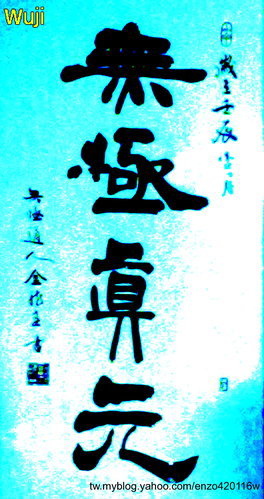 Wuji
歲在壬辰
無極真元
無極道人金
書
tw.myblog.yahoo.com/enzo420116w